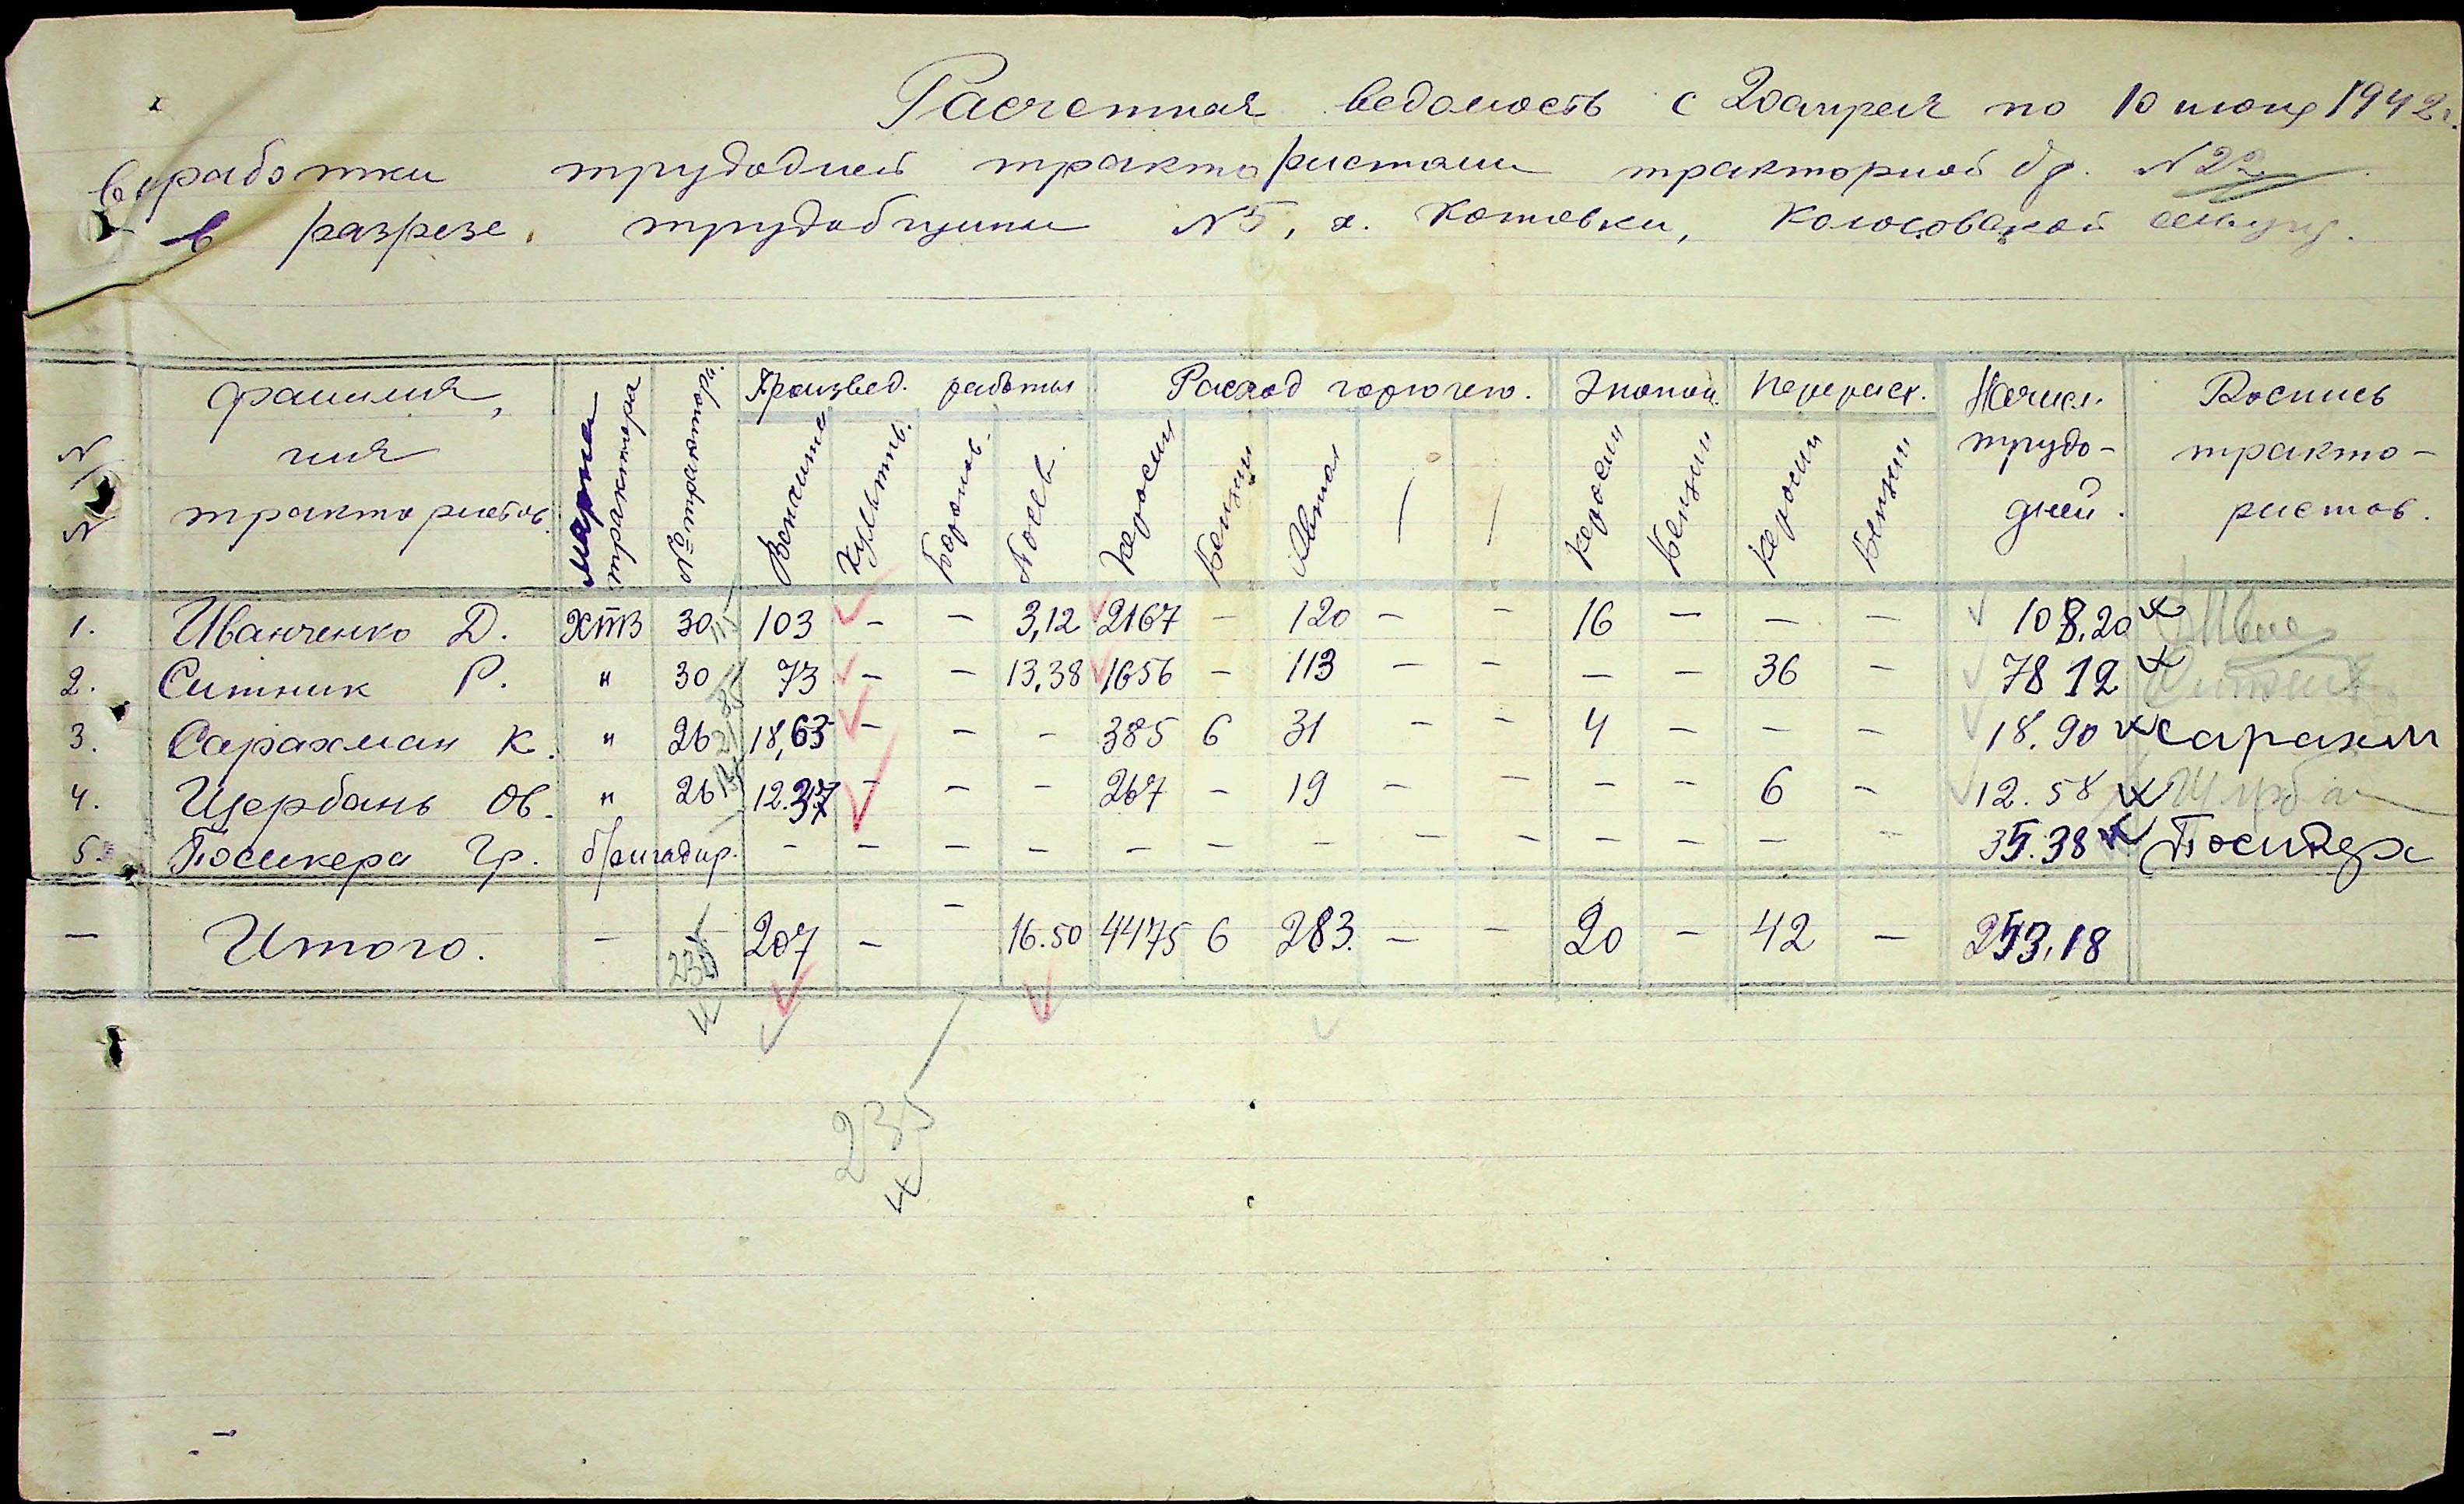 Расчетная ведомость с 20 апреля по 10 июня 1942 г.
выработки трудодней трактористами тракторной бр. № 22
в разрезе трудобщины № 5, х. Котовки, Колосовской
№ № фамилия, имя трактористов. марка трактора Произвед. работы Расход горючего. Эконом. Перерасх. Начисл. трудодней. Роспись трактористов.
Вспашка Культив. Боронов. Посев. Керосин Бензин Автол — — Керосин Бензин Керосин Бензин
1. Иванченко Д. ХТЗ 30 103 - - 3,12 2167 - 120 - - 16 - - - 108.20
2. Ситник Р. " 30 73 - - 13,38 1656 - 113 - - - - 36 - 78 12 Ситник
3. Сарахман К. " 26 18,63 - - - 385 6 31 - - 4 - - - 18.90 Сарахм
4. Щербань Ов. " 26 12.37 - - - 267 - 19 - - - - 6 - 12.58 Щерба
5. Посикера Гр. бригадир. - - - - - - - - - - - - - 35.38 Посикера
— Итого. - 235 207 - - 16.50 4475 6 283. - - 20 - 42 - 253,18
235